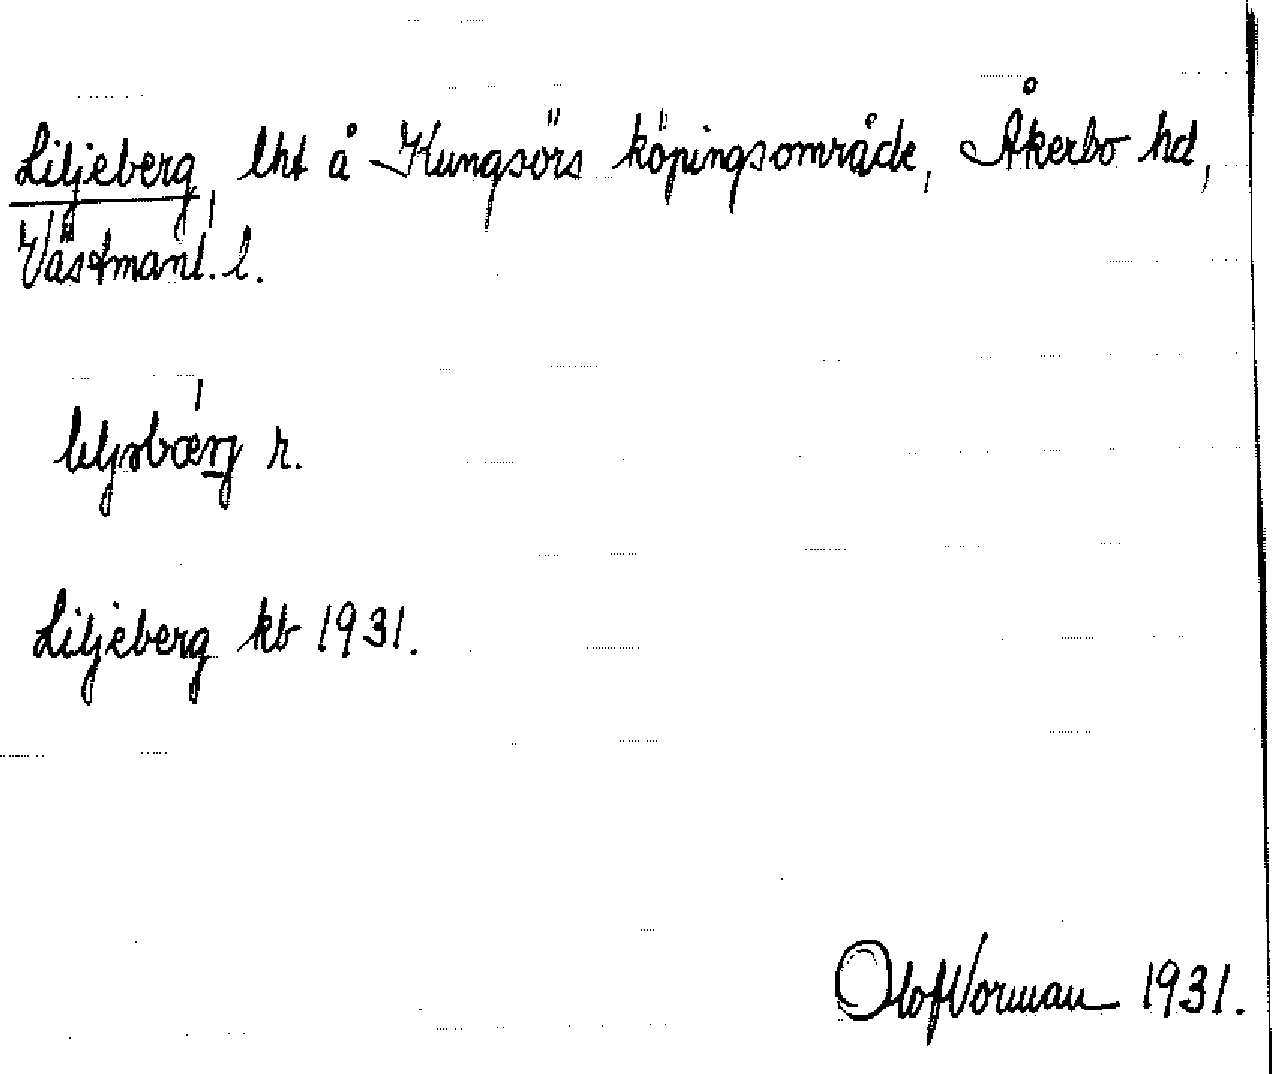 Liljeberg, lht å Kungsörs köpingsområde, Åkerbo hd,
Västmanl. l.
r.
Liljeberg kb 1931.
Olof Vorman 1931.